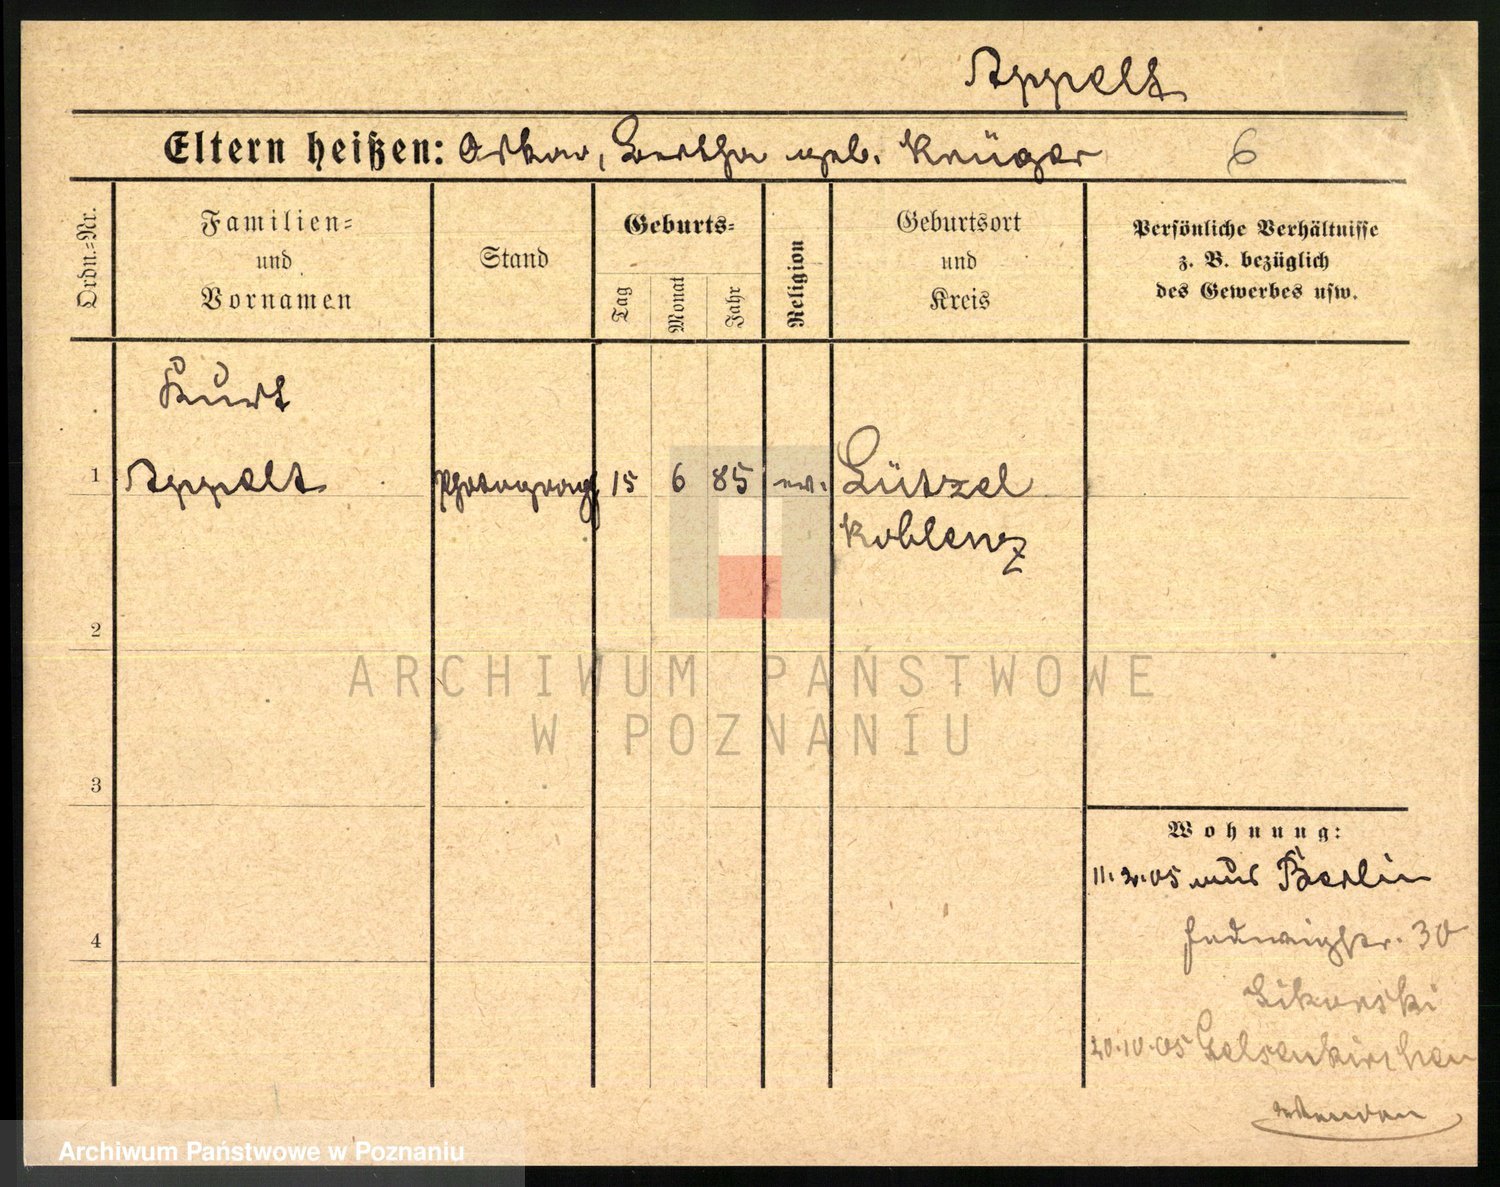 Appelt
Eltern heißen: Oskar, Bertha geb. Krüger 6
Ordn.=Nr.
Familien=
und
Vornamen
Stand
Geburts=
Tag
Monat
Jahr
Religion
Geburtsort
und
Kreis
Persönliche Verhältnisse
z. B. bezüglich
des Gewerbes usw.
Kurt
1 Appelt Photograph 15 6 85 ev. Lützel
Koblenz
2
ARCHIWUM PAŃSTWOWE
W POZNANIU
3
Wohnung:
11.2.05 aus Berlin
4
Hedwigstr. 30
Sikorski
20.10.05 Gelsenkirchen
Archiwum Państwowe w Poznaniu